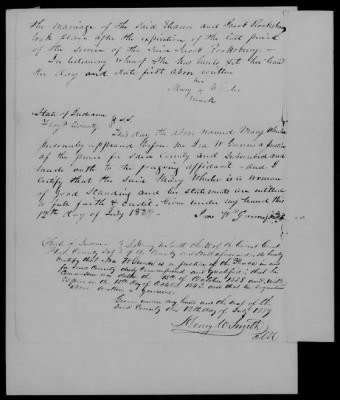 the marriage of the said Eleanor and Jacob Rooksberry
took place after the expiration of the last period
of the service of the said Jacob Rooksberry —
In testimony whereof She has hereto Set her hand
the day and date first above written
her
Mary X
mark
State of Indiana
County } SS
This day the above named Mary Wheeler
personally appeared before me Ira W. a Justice
of the peace for said County and Subscribed and
made oath to the foregoing affidavit — and I
Certify that the Said Mary Wheeler is a woman
of Good Standing and her statements are entitled
to full faith & Credit. Given under my hand this
12th day of July 1839
Ira W. J.P.
State of Indiana
County } I Clerk of the Circuit Court
of the County and State aforesaid do hereby
certify that Ira W. is a Justice of the Peace in and
for said County duly Commissioned and qualified; that his
Commission was dated the of October 1838 and will
Expire on the day of October and that his Signature
above written is Genuine
Given under my hand and the seal of the
Said County this 13th day of July 1839
Henry W Smith
Clk